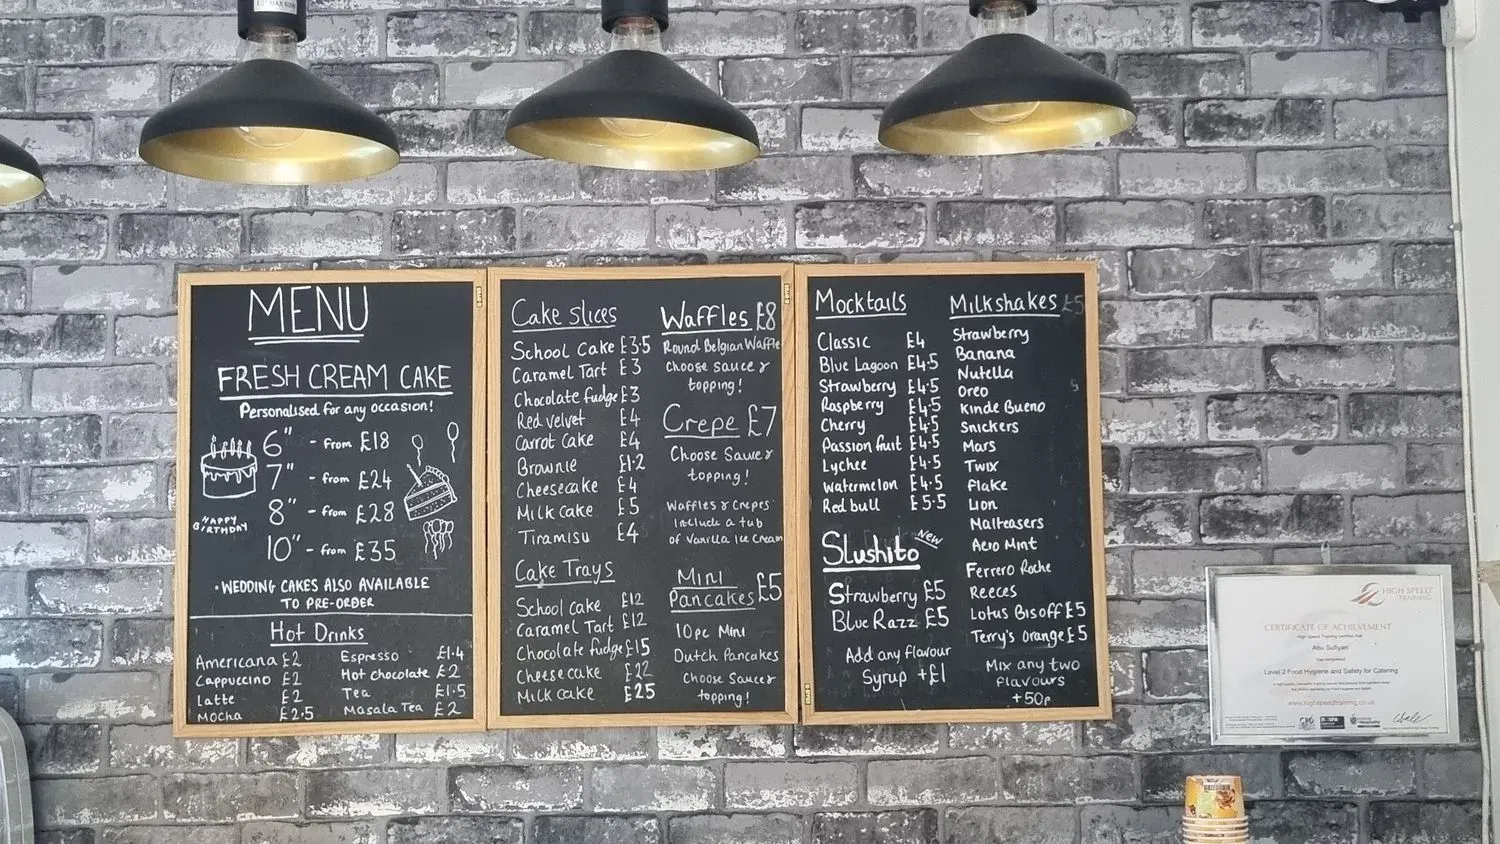 MENU
FRESH CREAM CAKE
Personalised for any occasion!
6" - from £18
7" - from £24
8" - from £28
10" - from £35
HAPPY
BIRTHDAY
• WEDDING CAKES ALSO AVAILABLE
TO PRE-ORDER
Hot Drinks
Americana £2
Cappuccino £2
Latte £2
Mocha £2.5
Espresso £1.4
Hot chocolate £2
Tea £1.5
Masala Tea £2
Cake slices
School Cake £3.5
Caramel Tart £3
Chocolate fudge £3
Red velvet £4
Carrot Cake £4
Brownie £1.2
Cheesecake £4
Milk cake £5
Tiramisu £4
Cake Trays
School cake £12
Caramel Tart £12
Chocolate fudge £15
Cheese cake £22
Milk cake £25
Waffles £8
Round Belgian Waffle
Choose sauce &
topping!
Crepe £7
Choose Sauce &
topping!
Waffles & Crepes
Include a tub
of Vanilla Ice Cream
Mini
Pancakes £5
10pc Mini
Dutch Pancakes
Choose Sauce &
topping!
Mocktails
Classic £4
Blue Lagoon £4.5
Strawberry £4.5
Raspberry £4.5
Cherry £4.5
Passion fruit £4.5
Lychee £4.5
Watermelon £4.5
Red bull £5.5
Slushito New
Strawberry £5
Blue Razz £5
Add any flavour
Syrup +£1
Milkshakes £5
Strawberry
Banana
Nutella
Oreo
Kinde Bueno
Snickers
Mars
Twix
Flake
Lion
Malteasers
Aero Mint
Ferrero Roche
Reeces
Lotus Bisoff £5
Terry's Orange £5
Mix any two
flavours
+50p
HIGH SPEED
TRAINING
CERTIFICATE OF ACHIEVEMENT
High Speed Training certifies that
Abu Sufiyan
has completed
Level 2 Food Hygiene and Safety for Catering
www.highspeedtraining.co.uk